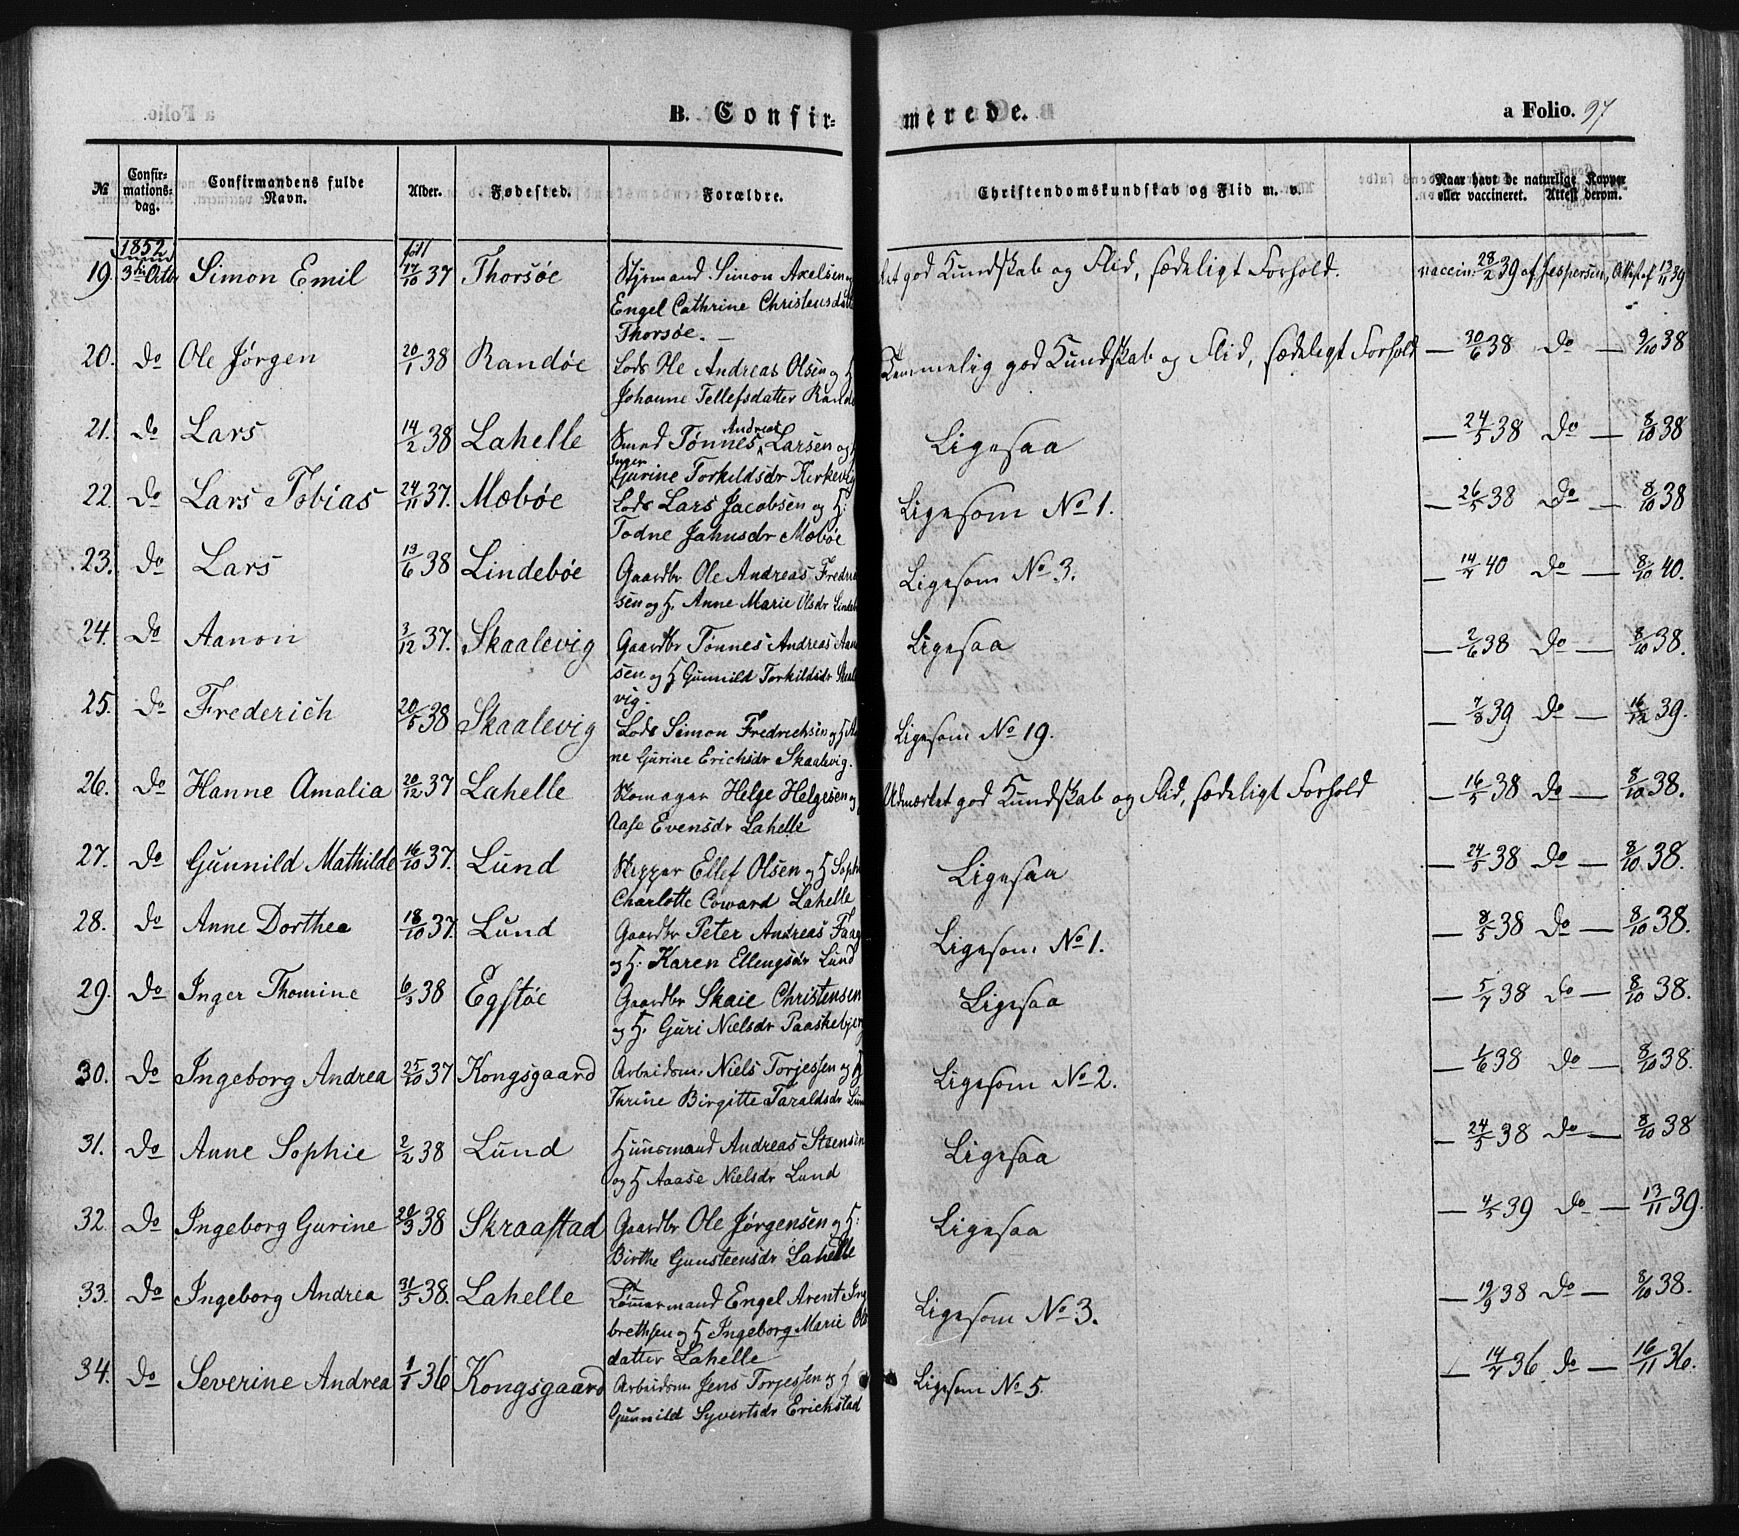 B. Confir-
merede.
a Folio. 97
№
Confir-
mations-
dag.
Confirmandens fulde
Navn.
Alder.
Fødested.
Forældre.
Christendomskundskab og Flid m. v.
Naar havt de naturlige Kopper
eller vaccineret. Attest derom.
1852
19. 3die Octbr Simon Emil født 17/10 37 Thorsøe Styrmand Simon Axelsen og
Engel Cathrine Christensdatter
Thorsøe.
god Kundskab og Flid, sædeligt Forhold. vaccin. 28/2 39 af Jespersen, Attest af 13/11 39
20. Do Ole Jørgen 20/1 38 Randøe Lods Ole Andreas Olsen og H
Johanne Tellefsdatter
Temmelig god Kundskab og Flid, sædeligt Forhold — 30/6 38 Do — 9/10 38
21. Do Lars 14/2 38 Lahelle Smed Tønnes Andreas Larsen og
Inger Gurine Torkildsdr Kirkevig
Ligesaa — 24/5 38 Do — 8/10 38
22. Do Lars Tobias 24/11 37. Mæbøe Lods Lars Jacobsen og H:
Todne Jahnsdr Mæbøe
Ligesom No 1. — 26/5 38 Do — 8/10 38
23. Do Lars 13/6 38 Lindebøe Gaardbr Ole Andreas
sen og H. Anne Marie Olsdr
Ligesom No 3. — 14/7 40 Do — 8/10 40.
24. Do Aanon 3/12 37. Skaalevig Gaardbr Tønnes Andreas
sen og H Gunnild Torkildsdr Skaale
vig.
Ligesaa — 2/6 38 Do — 8/10 38.
25. Do Frederich 20/5 38 Skaalevig Lods Simon Fredrichsen og H
ne Gurine Erichsdr Skaalevig.
Ligesom No 19. — 7/8 39 Do — 16/12 39.
26. Do Hanne Amalia 20/12 37 Lahelle Skomager Helge Helgesen og
Aase Evensdr Lahelle
Udmærket god Kundskab og Flid, sædeligt Forhold — 16/5 38 Do — 8/10 38.
27. Do Gunnild Mathilde 16/10 37. Lund Skipper Ellef Olsen og H Sophie
Charlotte Coward Lahelle
Ligesaa — 24/5 38 Do — 8/10 38.
28. Do Anne Dorthea 18/10 37. Lund Gaardbr Peter Andreas
og H. Karen Ellengsdr Lund
Ligesom No 1. — 8/5 38 Do — 8/10 38.
29. Do Inger Thomine 6/3 38 Egstøe Gaardbr Skaie Christensen
og H. Guri Nielsdr Paaskebjerg
Ligesaa — 5/7 38 Do — 8/10 38.
30. Do Ingeborg Andrea 25/10 37 Kongsgaard Arbeidsm. Niels Torjessen og H
Thrine Birgitte Taraldsdr Lund
Ligesom No 2. — 1/6 38 Do — 8/10 38.
31. Do Anne Sophie 2/2 38 Lund Huusmand Andreas Steensen
og H Aaase Nielsdr Lund
Ligesaa — 24/5 38 Do — 8/10 38
32. Do Ingeborg Gurine 20/3 38 Skraastad Gaardbr Ole Jørgensen og H:
Birthe Gunsteensdr Lahelle
Ligesaa — 4/5 39 Do — 13/11 39.
33. Do Ingeborg Andrea 31/5 38. Lahelle Tømmermand Engel Arent Ing
brethsen og H Ingeborg Marie Ols
datter Lahelle
Ligesom No 3. — 19/9 38 Do — 8/10 38.
34. Do Severine Andrea 1/1 36 Kongsgaard Arbeidsm Jens Torjessen og H
Gunnild Syvertsdr Erichstad
Ligesom No 5. — 14/7 36. Do — 16/11 36.